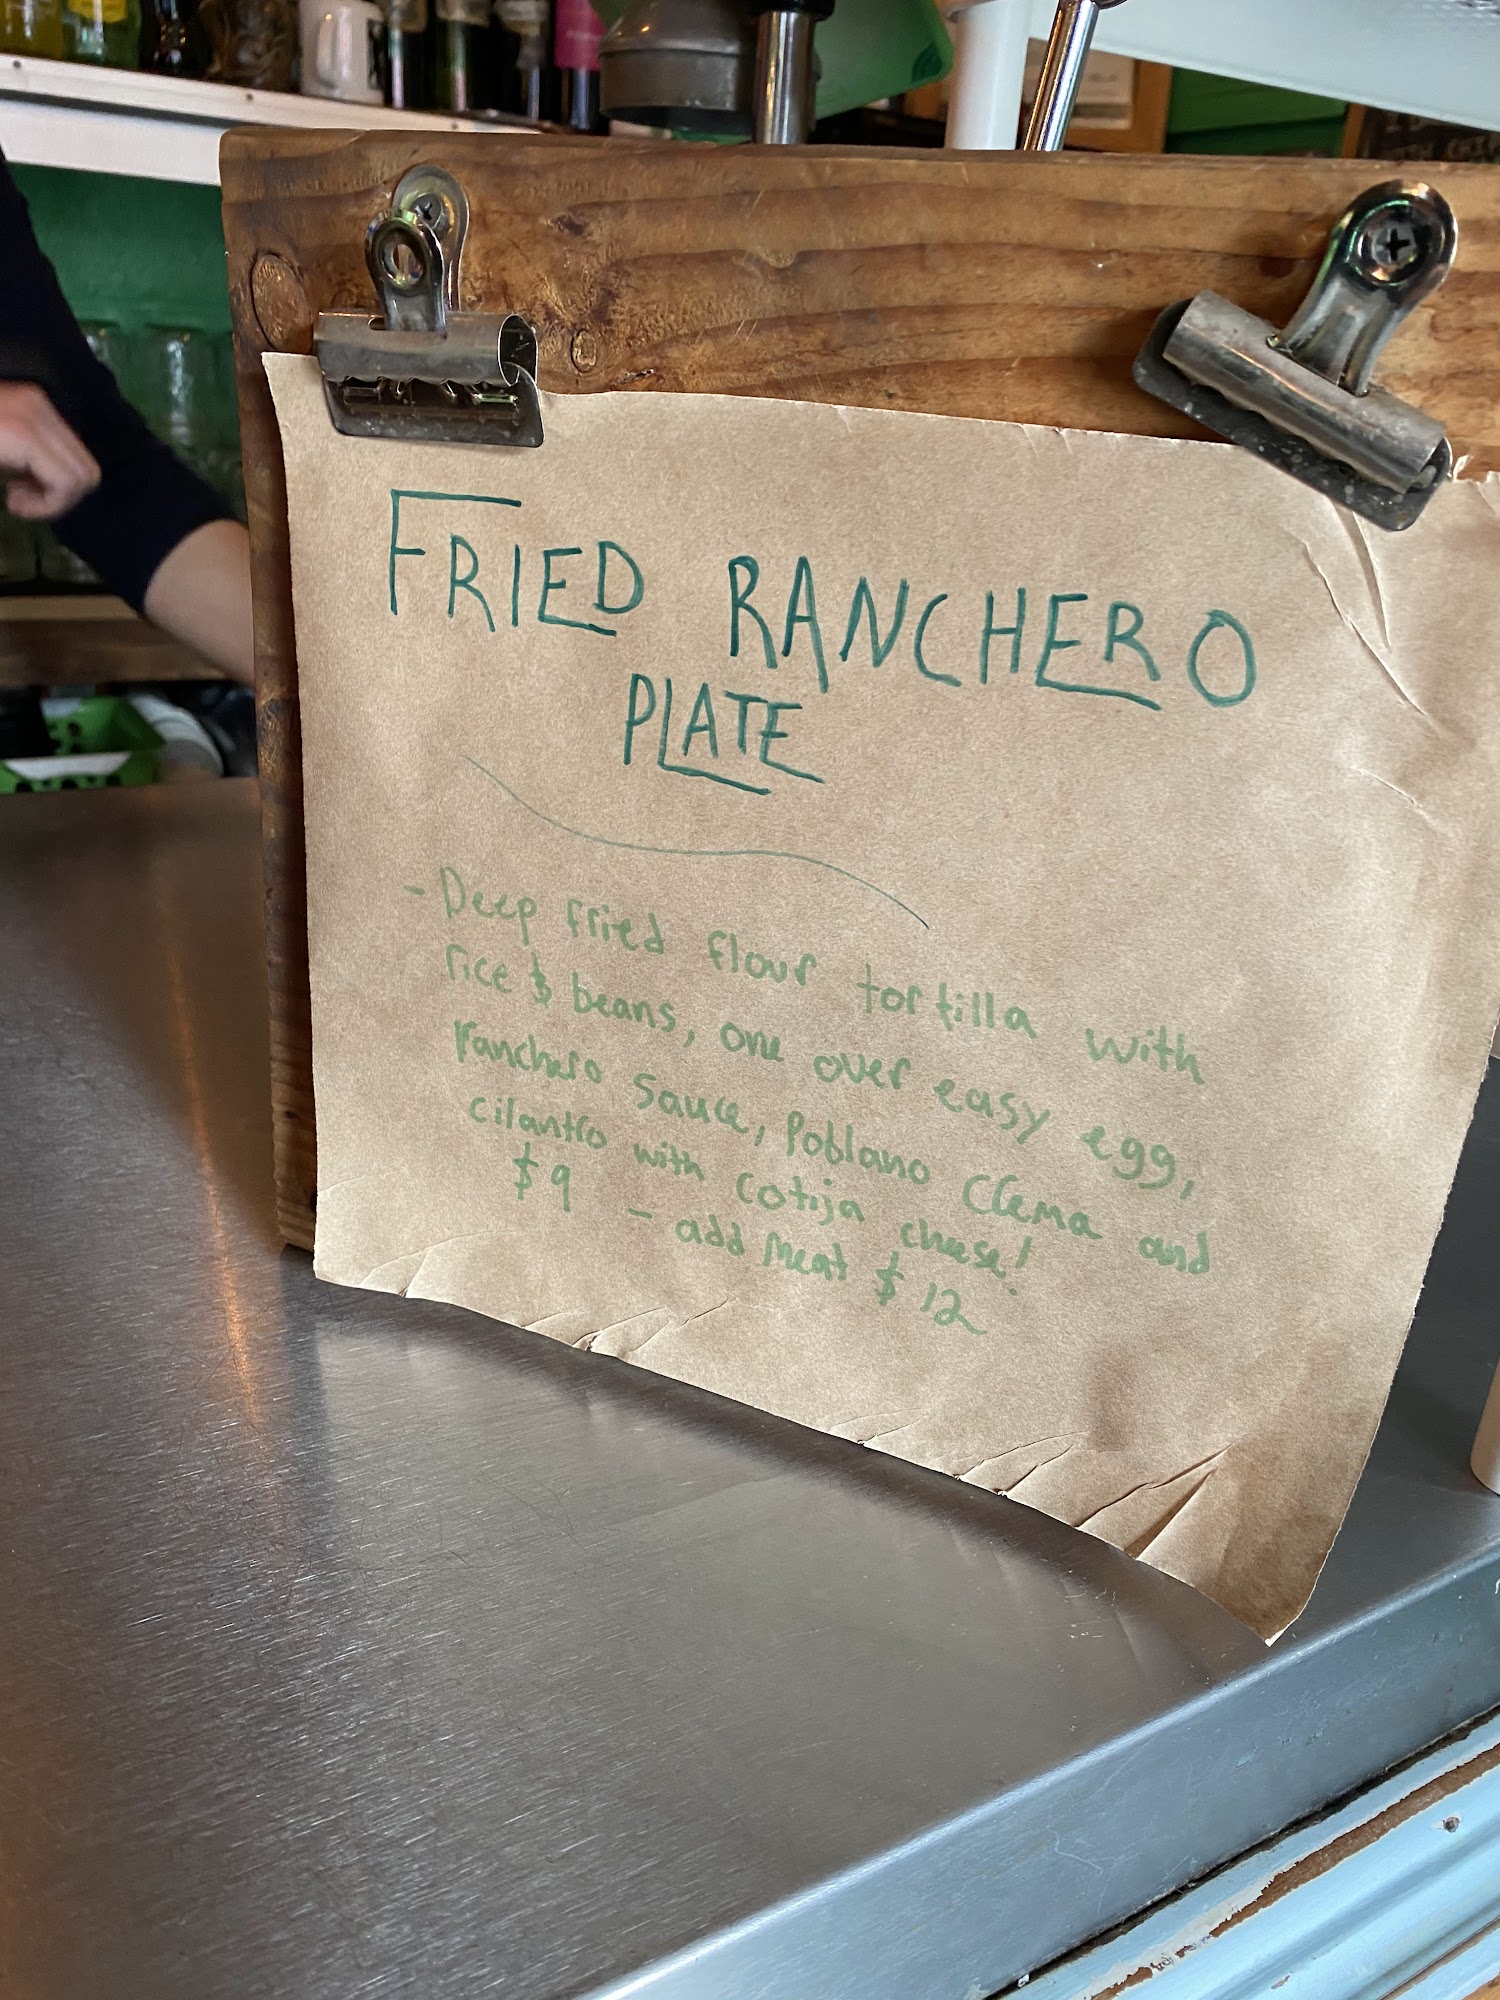 FRIED RANCHERO
PLATE
- Deep fried flour tortilla with
rice & beans, one over easy egg,
ranchero sauce, Poblano Crema and
cilantro with cotija cheese!
$9 - add meat $12